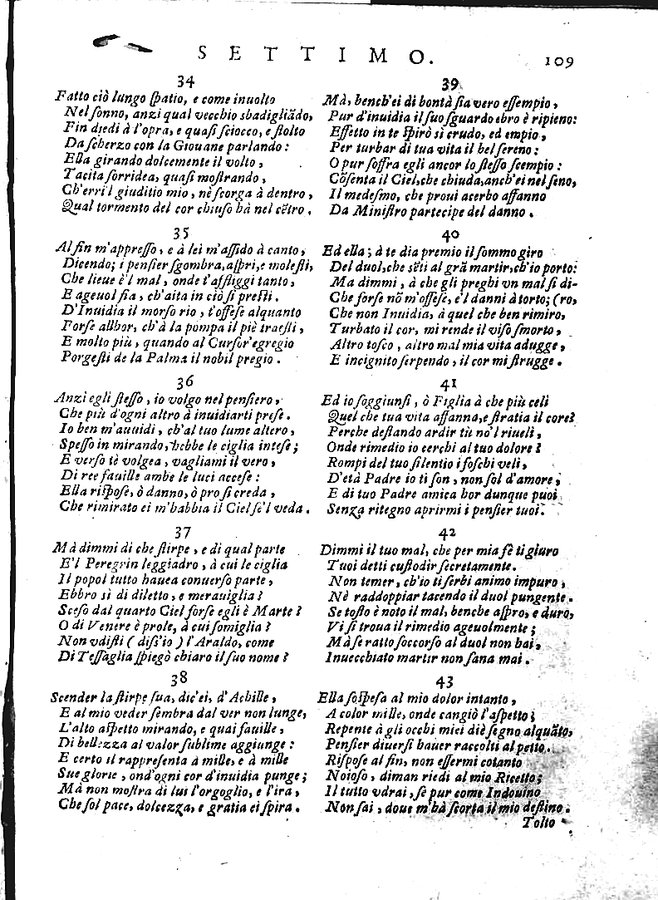 SETTIMO. 109
34
Fatto ciò lungo ſpatio, e come inuolto
Nel ſonno, anzi qual vecchio sbadigliãdo,
Fin diedi à l'opra, e quaſi ſciocco, e ſtolto
Da ſcherzo con la Giouane parlando:
Ella girando dolcemente il volto,
Tacita ſorridea, quaſi moſtrando,
Ch'erri l giuditio mio, nè ſcorga à dentro,
Qual tormento del cor chiuſo hà nel cẽtro.
35
Al fin m'appreſſo, e à lei m'aſſido à canto,
Dicendo; i penſier ſgombra, aſpri, e moleſti,
Che lieue è'l mal, onde t'affliggi tanto,
E ageuol ſia, ch'aita in ciò ſi preſti.
D'Inuidia il morſo rio, t'offeſe alquanto
Forſe allhor, ch'à la pompa il piè traeſti,
E molto più, quando al Curſor egregio
Porgeſti de la Palma il nobil pregio.
36
Anzi egli ſteſſo, io volgo nel penſiero,
Che più d'ogni altro à inuidiarti preſe.
Io ben m'auuidi, ch'al tuo lume altero,
Speſſo in mirando, hebbe le ciglia inteſe;
E verſo tè volgea, vagliami il vero,
Di ree fauille ambe le luci acceſe:
Ella riſpoſe, ò danno, ò pro ſi creda,
Che rimirato ei m'habbia il Ciel ſe'l veda.
37
Mà dimmi di che ſtirpe, e di qual parte
E'l Peregrin leggiadro, à cui le ciglia
Il popol tutto hauea conuerſo parte,
Ebbro sì di diletto, e merauiglia?
Sceſo dal quarto Ciel forſe egli è Marte?
O di Venere è prole, à cui ſomiglia?
Non vdiſti (diſs'io) l'Araldo, come
Di Teſſaglia ſpiegò chiaro il ſuo nome?
38
Scender la ſtirpe ſua, dic'ei, d'Achille,
E al mio veder ſembra dal ver non lunge,
L'alto aſpetto mirando, e quai fauille,
Di bellezza al valor ſublime aggiunge:
E certo il rappreſenta à mille, e à mille
Sue glorie, ond'ogni cor d'inuidia punge;
Mà non moſtra di lui l'orgoglio, e l'ira,
Che ſol pace, dolcezza, e gratia ei ſpira.
39
Mà, bench'ei di bontà ſia vero eſſempio,
Pur d'inuidia il ſuo ſguardo ebro è ripieno:
Effetto in te ſpirò sì crudo, ed empio,
Per turbar di tua vita il bel ſereno:
O pur ſoffra egli ancor lo ſteſſo ſcempio:
Cõſenta il Ciel, che chiuda, anch'ei nel ſeno,
Il medeſmo, che proui acerbo affanno
Da Miniſtro partecipe del danno.
40
Ed ella; à te dia premio il ſommo giro
Del duol, che sẽti al grã martir, ch'io porto:
Ma dimmi, à che gli preghi vn mal ſi di-
Che forſe nõ m'offeſe, e'l danni à torto; (ro,
Che non Inuidia, à quel che ben rimiro,
Turbato il cor, mi rende il viſo ſmorto,
Altro toſco, altro mal mia vita adugge,
E incognito ſerpendo, il cor mi ſtrugge.
41
Ed io ſoggiunſi, ò Figlia à che più celi
Quel che tua vita affanna, e ſtratia il core?
Perche deſtando ardir tù nõ'l riueli,
Onde rimedio io cerchi al tuo dolore?
Rompi del tuo ſilentio i foſchi veli,
D'età Padre io ti ſon, non ſol d'amore,
E di tuo Padre amica hor dunque puoi
Senza ritegno aprirmi i penſier tuoi.
42
Dimmi il tuo mal, che per mia fè ti giuro
Tuoi detti cuſtodir ſecretamente.
Non temer, ch'io ti ſerbi animo impuro,
Nè raddoppiar tacendo il duol pungente.
Se toſto è noto il mal, benche aſpro, e duro,
Vi ſi troua il rimedio ageuolmente;
Mà ſe ratto ſoccorſo al duol non hai,
Inuecchiato martir non ſana mai.
43
Ella ſoſpeſa al mio dolor intanto,
A color mille, onde cangiò l'aſpetto;
Repente à gli occhi miei diè ſegno alquãto,
Penſier diuerſi hauer raccolti al petto.
Riſpoſe al fin, non eſſermi cotanto
Noioſo, diman riedi al mio Ricetto;
Il tutto vdrai, ſe pur come Indouino
Non ſai, doue m'hà ſcorta il mio deſtino.
Tolto